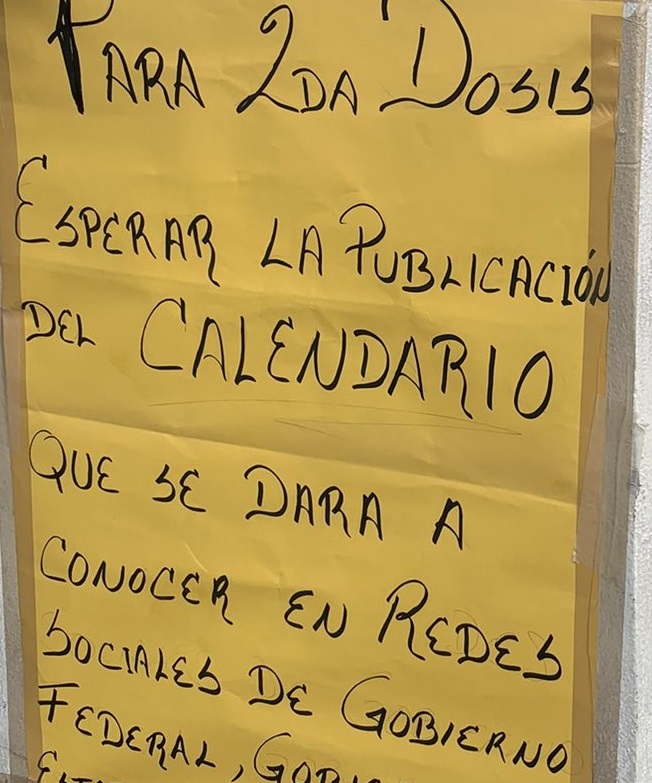 PARA 2DA DOSIS
ESPERAR LA PUBLICACIÓN
DEL CALENDARIO
QUE SE DARA A
CONOCER EN REDES
SOCIALES DE GOBIERNO
FEDERAL,